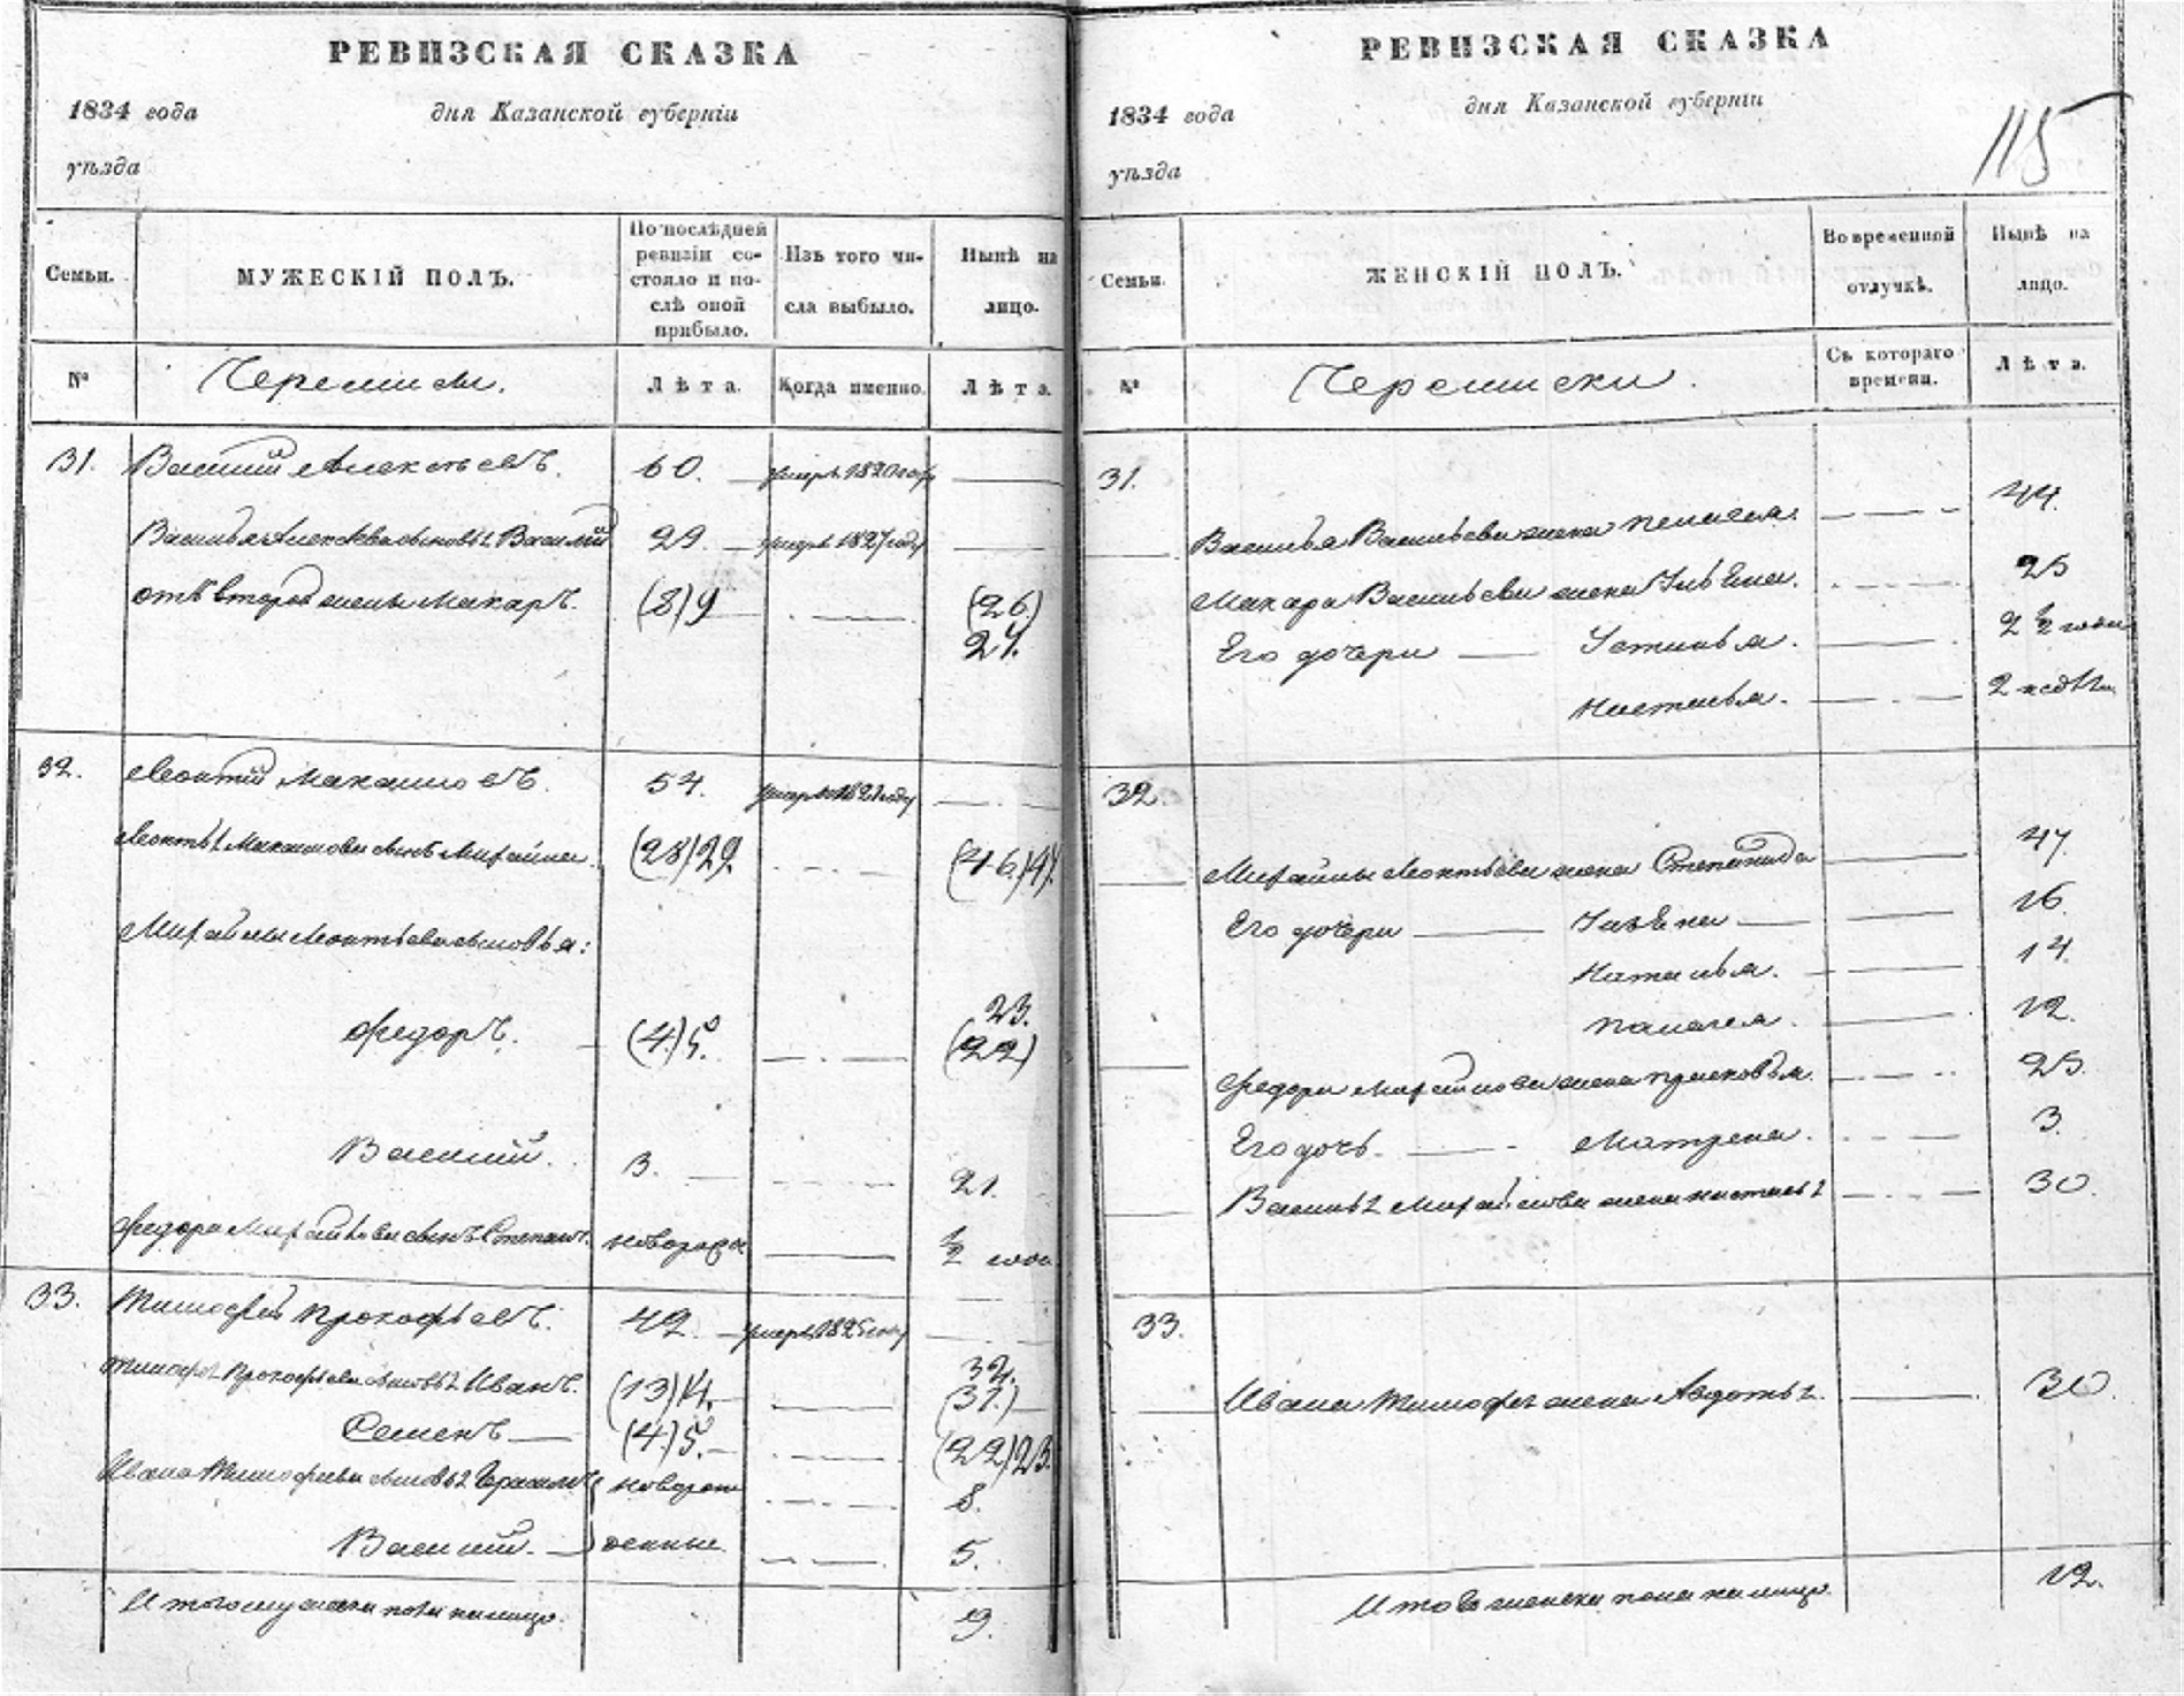 РЕВИЗСКАЯ СКАЗКА
1834 года дня Казанской губернiи
уѣзда
Семьи.
МУЖЕСКIЙ ПОЛЪ.
По послѣдней ревизiи состояло и послѣ оной прибыло.
Изъ того числа выбыло.
Нынѣ на лицо.
№
Черемисы.
Лѣта.
Когда именно.
Лѣта.
31. Василий Алексѣевъ. 60. умеръ 1820 году
Василья Алексѣева сыновья Василий 29. умеръ 1827 году
отъ второй жены Макаръ. (8) 9 (26)
27.
32. Леонтий Макаи ловъ. 54. умеръ 1821 году
Леонтья сынъ Михайла. (28) 29. (46.) 47.
Михайлы Леонтьева сыновья:
23.
Федоръ. (4.) 5. (22)
Василий. 3. 21.
Федора Михайлова сынъ Степанъ. новорож. ½ года
33. Тимофей Прокофьевъ. 42. умеръ 1825 году
32.
Тимофея Прокофьева сыновья Иванъ. (13) 14. (31.)
Семенъ (4.) 5. (22) 23.
Ивана Тимофеева сыновья Герасимъ новорож 8.
Василий. денные. 5.
Итого мужеска пола налицо. 9.
РЕВИЗСКАЯ СКАЗКА
115
1834 года дня Казанской губернiи
уѣзда
Семьи.
ЖЕНСКIЙ ПОЛЪ.
Во временной отлучкѣ.
Нынѣ на лицо.
№
Черемиски.
Съ котораго времени.
Лѣта.
31.
Василья Васильева жена Пелагея. 44.
Макара Васильева жена Ульяна. 25
Его дочери Устинья. 2 ½ года
Настасья. 2 недѣли
32.
Михайлы Леонтьева жена Степанида 47.
Его дочери Ульяна 16.
Наталья. 14.
Палагея. 12.
Федора Михайлова жена Прасковья. 25.
Его дочь. Матрена. 3.
Василья Михайлова жена Настасья 30.
33.
Ивана Тимофея жена Авдотья. 30.
Итого женска пола налицо. 12.